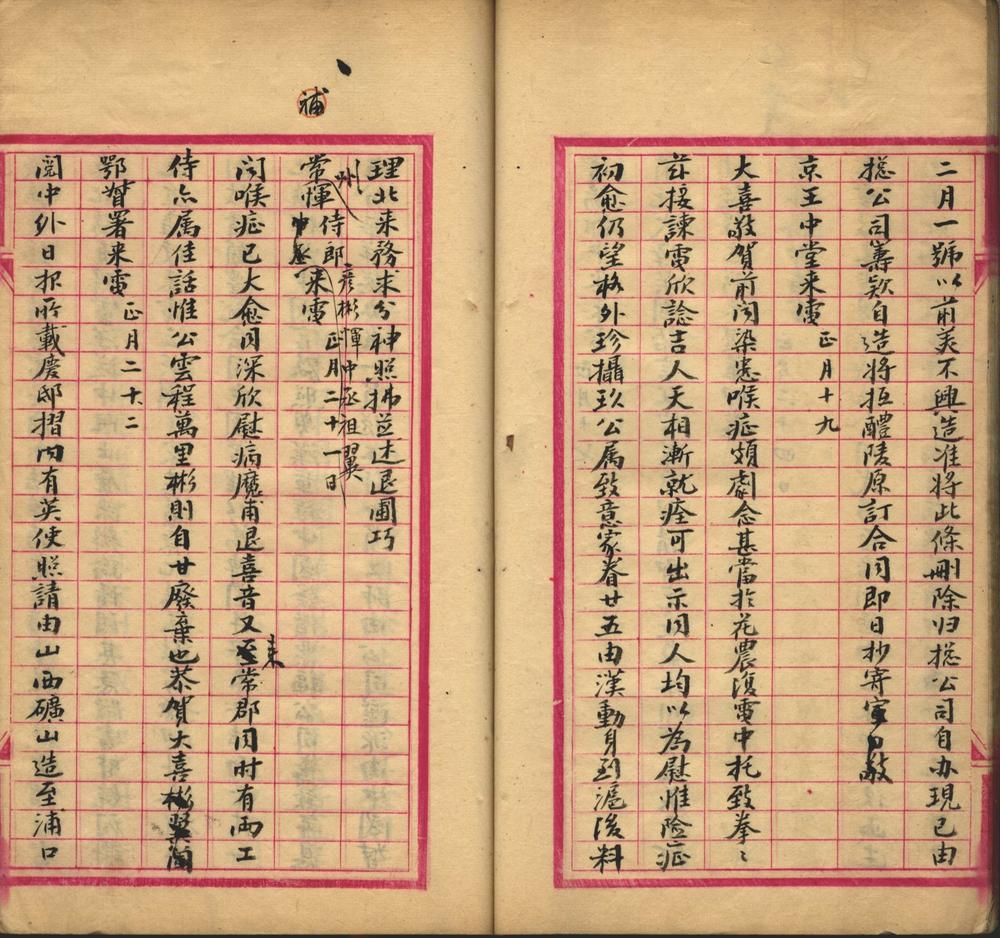 二月一號以前美不興造准將此條刪除归総公司自办現已由
総公司籌欵自造將拒醴陵原訂合同即日抄寄宣叩敬
京王中堂来電 正月十九
大喜敬賀前闻染患喉症頗劇念甚當於花農復電中托致拳〻
茲接諫電欣諗吉人天相漸就痊可出示同人均以為慰惟險症
初愈仍望格外珍攝玖公属致意家眷廿五由漢動身到滬後料
理北来務求分神照拂並述退圃巧
補
常州惲侍郎彦彬惲中丞祖翼来電 正月二十一日
闻喉症已大愈闻深欣慰病魔甫退喜音又来常郡同时有両工
侍亦属佳話惟公雲程萬里彬則自甘廢棄也恭賀大喜彬翼箇
鄂督署来電 正月二十二
閲中外日报所載慶邸摺内有英使照請由山西礦山造至浦口